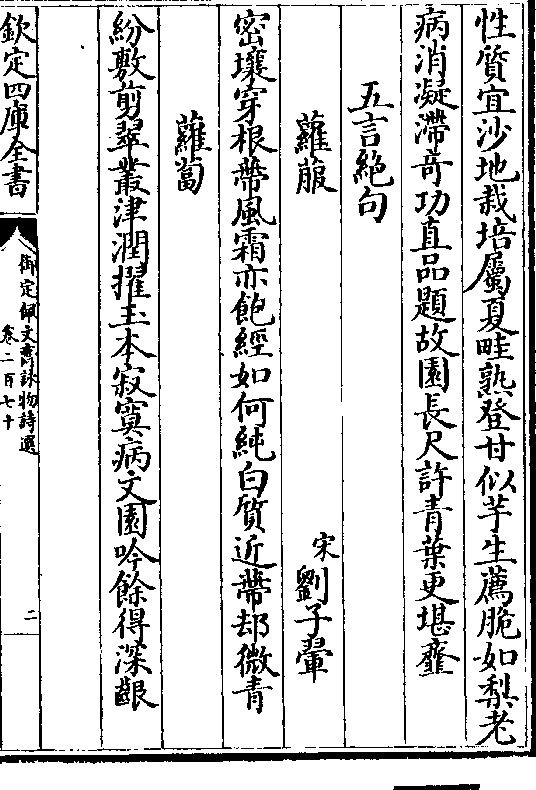 性質宜沙地栽培屬夏畦熟登甘似芋生薦脆如梨老
病消凝滯竒功直品題故園長尺許青葉更堪齏
五言絶句
蘿服 宋劉子翬
密壤穿根蔕風霜亦飽經如何純白質近蔕却微青
蘿蔔
紛敷剪翠叢津潤擢玉本寂寞病文園吟餘得深齦
欽定四庫全書
御定佩文齋詠物詩選
卷二百七十
二